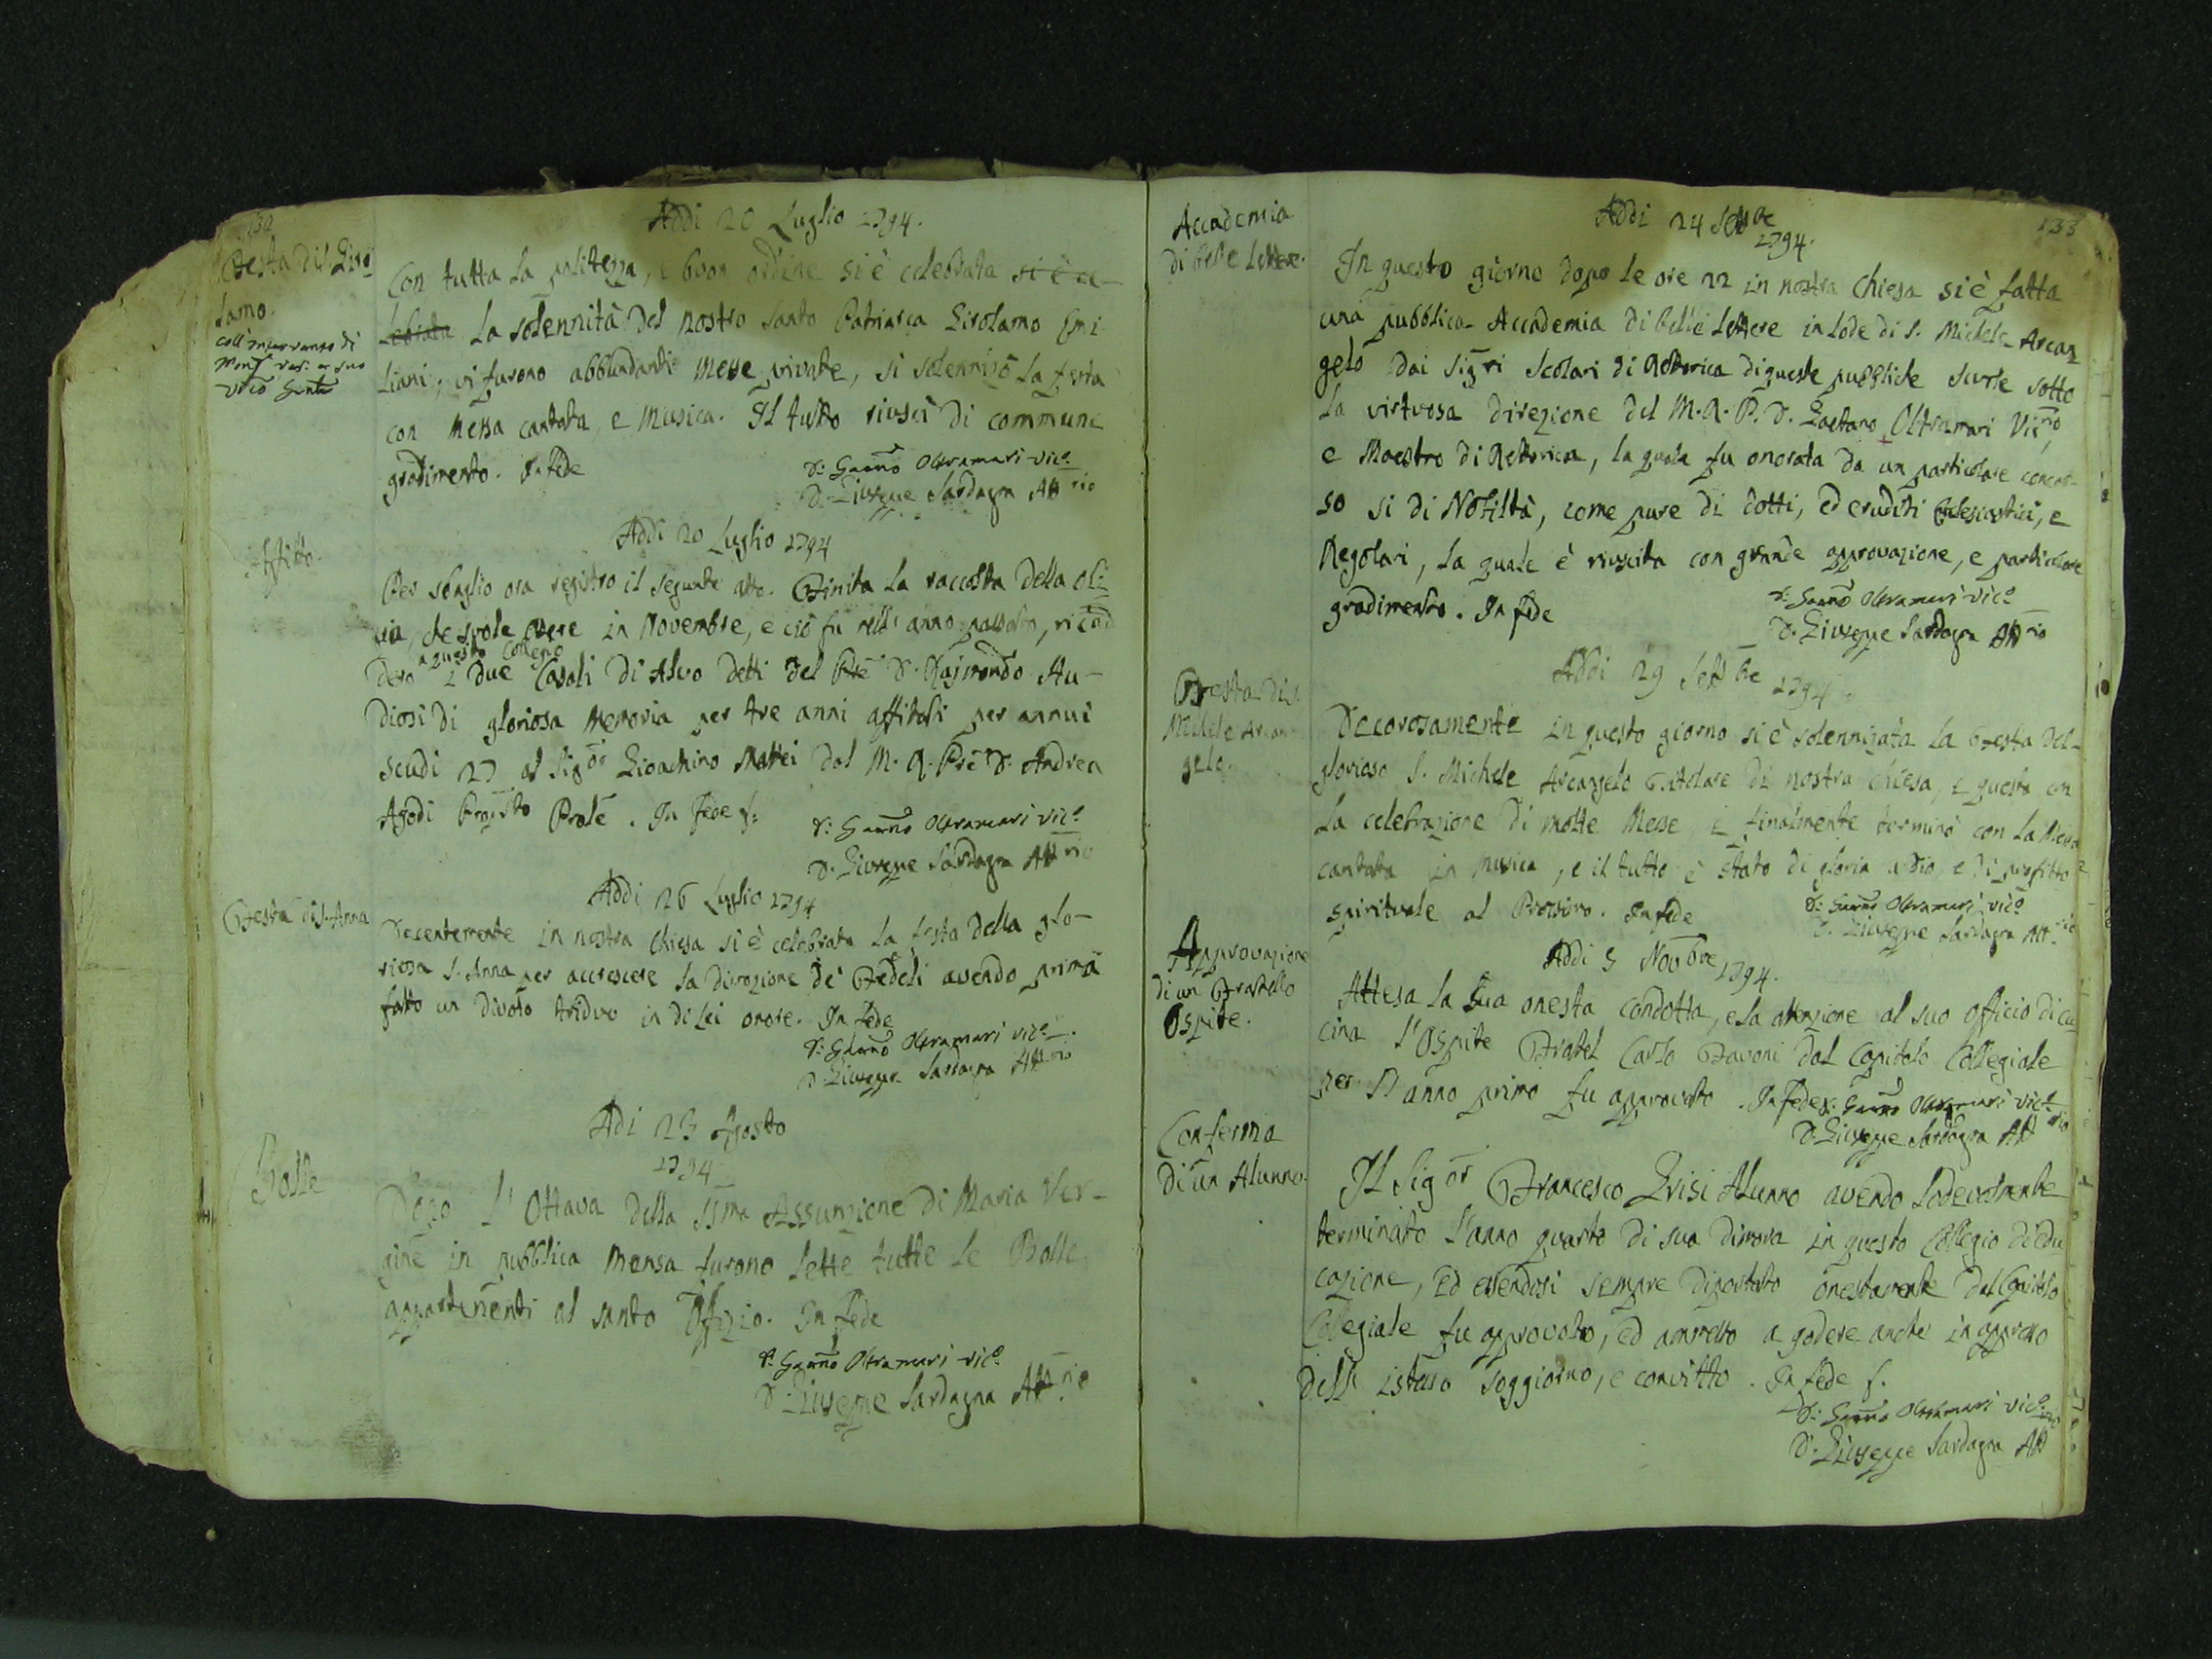 132
Addi 20 Luglio 1794.
Festa di S. Giro
lamo.
coll'intervento di
Con tutta la pulitezza, e buon ordine si è celebrata si è ce-
lebrata la solennità del nostro Santo Patriarca Girolamo Emi
liani, vi furono abbondanti Messe private, si solennizò la festa
con Messa cantata, e Musica. Il tutto riuscì di commune
gradimento. In fede
D. Gaetno Oltramari Vico.
D. Giuseppe Sardagna Attrio
Addi 20 Luglio 1794
Affitto.
Per sbaglio ora registro il seguente atto. Finita la raccolta della oli-
va, che suole essere in Novembre, e ciò fu nell'anno passato, ricad
dero a questo Collegio i due Casali di Alvo detti del Pre D. Rajmondo Au-
diosi di gloriosa Memoria per tre anni affittati per annui
scudi 27 al Sigor Gioachino Mattei dal M. R. Pre D. Andrea
Agodi Proposto Prole. In fede
D. Gaetno Oltramari Vico.
D. Giuseppe Sardagna Attrio
Addi 26 Luglio 1794
Festa di S. Anna
Decentemente in nostra Chiesa si è celebrata la festa della glo-
riosa S. Anna per accrescere la divozione de' Fedeli avendo prima
fatto un divoto triduo in di Lei onore. In fede
D. Gaetno Oltramari Vico.
D. Giuseppe Sardagna Attrio
Adi 23 Agosto
1794
Bolle
Dopo l'Ottava della SSma Assunzione di Maria Ver-
gine in pubblica Mensa furono lette tutte le Bolle
appartenenti al Santo Offizio. In fede
D. Gaetno Oltramari Vico.
D. Giuseppe Sardagna Attrio
133
Addi 24 Settbre
1794.
Accademia
di Belle Lettere.
In questo giorno dopo le ore 22 in nostra Chiesa si è fatta
una pubblica Accademia di belle lettere in lode di S. Michele Arcan
gelo dai Sigri Scolari di Rettorica di queste pubbliche scuole sotto
la virtuosa direzione del M. R. P. D. Gaetano Oltramari Vicrio
e Maestro di Rettorica, la quale fu onorata da un particolare concor-
so si di Nobiltà, come pure di dotti, ed eruditi Eclesiastici, e
Regolari, la quale è riuscita con grande approvazione, e particolare
gradimento. In fede
D. Gaetno Oltramari Vico.
D. Giuseppe Sardagna Attrio
Addi 29 Settbre 1794.
Festa di S.
Michele Arcan
gelo.
Decorosamente in questo giorno si è solennizata la Festa del
glorioso S. Michele Arcangelo Titolare di nostra Chiesa, e questa con
la celebrazione di molte Messe, e finalmente terminò con la Messa
cantata in Musica, e il tutto è stato di gloria a Dio, e di profitto
spirituale al Prossimo. In fede
D. Gaetno Oltramari Vico
D. Giuseppe Sardagna Attrio
Addi 5 Novbre 1794.
Approvazione
di un Fratello
Ospite.
Attesa la sua onesta condotta, e la attenzione al suo officio di cu
cina l'Ospite Fratel Carlo Pavoni dal Capitolo Collegiale
per l'anno primo fu approvato. In fede D. Gaetno Oltramari Vico
D. Giuseppe Sardagna Attrio
Conferma
di un Alunno.
Il Sigor Francesco Grisi Alunno avendo lodevolmente
terminato l'anno quarto di sua dimora in questo Collegio di Edu
cazione, ed essendosi sempre diportato onestamente dal Capitolo
Collegiale fu approvato, ed ammesso a godere anche in appresso
dello istesso soggiorno, e convitto. In fede
D. Gaetno Oltramari Vico
D. Giuseppe Sardagna Attrio